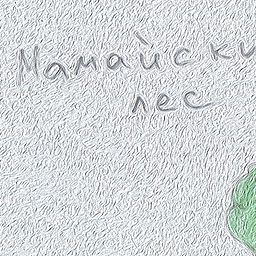 Мамайски
лес